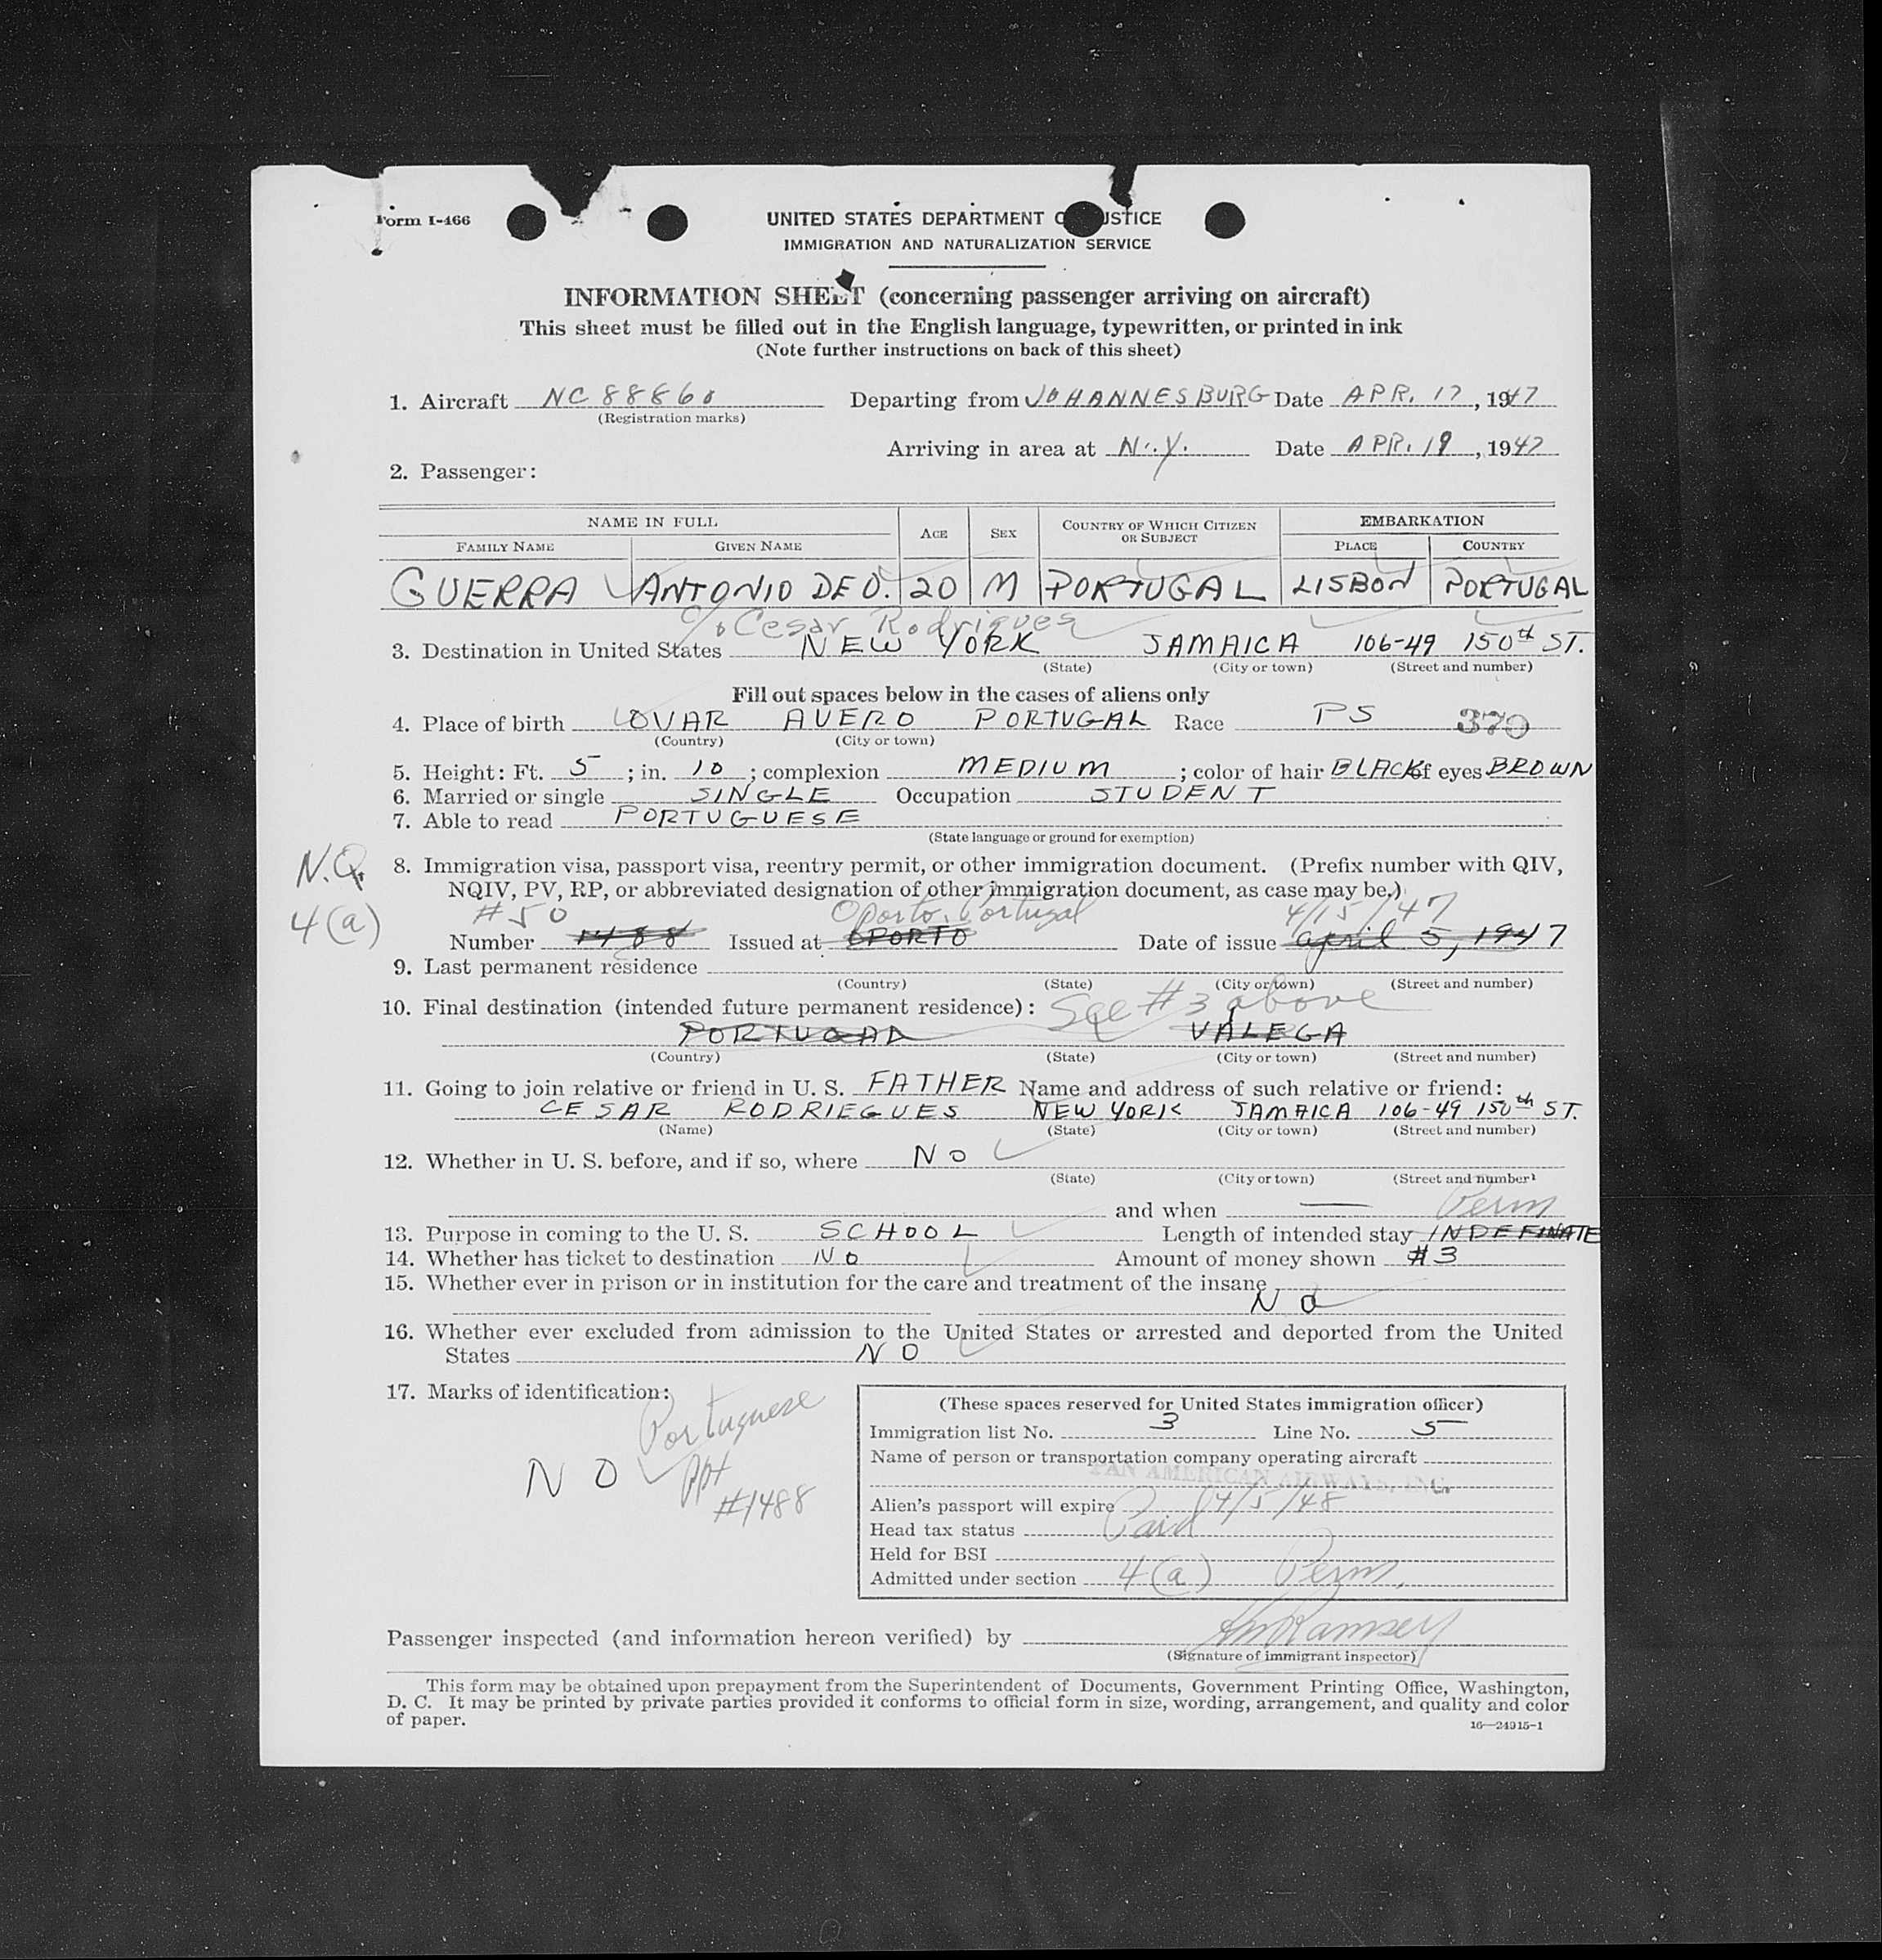 Form I-466
UNITED STATES DEPARTMENT O JUSTICE
IMMIGRATION AND NATURALIZATION SERVICE
INFORMATION SHEET (concerning passenger arriving on aircraft)
This sheet must be filled out in the English language, typewritten, or printed in ink
(Note further instructions on back of this sheet)
1. Aircraft NC 88860 Departing from JOHANNESBURG Date APR. 17, 1947
(Registration marks)
Arriving in area at N.Y. Date APR. 19, 1947
2. Passenger:
NAME IN FULL AGE SEX COUNTRY OF WHICH CITIZEN OR SUBJECT EMBARKATION
FAMILY NAME GIVEN NAME PLACE COUNTRY
GUERRA ANTONIO DE O. 20 M PORTUGAL LISBON PORTUGAL
c/o Cesar Rodrigues
3. Destination in United States NEW YORK JAMAICA 106-49 150th ST.
(State) (City or town) (Street and number)
Fill out spaces below in the cases of aliens only
4. Place of birth OVAR AVERO PORTUGAL Race PS 370
(Country) (City or town)
5. Height: Ft. 5; in. 10; complexion MEDIUM; color of hair BLACK of eyes BROWN
6. Married or single SINGLE Occupation STUDENT
7. Able to read PORTUGUESE
(State language or ground for exemption)
N.Q. 8. Immigration visa, passport visa, reentry permit, or other immigration document. (Prefix number with QIV,
NQIV, PV, RP, or abbreviated designation of other immigration document, as case may be.)
4(a) #50 Oporto, Portugal 4/15/47
Number 1488 Issued at OPORTO Date of issue april 5, 1947
9. Last permanent residence
(Country) (State) (City or town) (Street and number)
10. Final destination (intended future permanent residence): See #3 above
PORTUGAL VALEGA
(Country) (State) (City or town) (Street and number)
11. Going to join relative or friend in U. S. FATHER Name and address of such relative or friend:
CESAR RODRIEGUES NEW YORK JAMAICA 106-49 150th ST.
(Name) (State) (City or town) (Street and number)
12. Whether in U. S. before, and if so, where NO
(State) (City or town) (Street and number)
and when — Perm
13. Purpose in coming to the U. S. SCHOOL Length of intended stay INDEFINATE
14. Whether has ticket to destination NO Amount of money shown #3
15. Whether ever in prison or in institution for the care and treatment of the insane
NO
16. Whether ever excluded from admission to the United States or arrested and deported from the United
States NO
17. Marks of identification:
NO
Portuguese
ppt
#1488
(These spaces reserved for United States immigration officer)
Immigration list No. 3 Line No. 5
Name of person or transportation company operating aircraft
PAN AMERICAN AIRWAYS, INC.
Alien's passport will expire 4/5/48
Head tax status Paid
Held for BSI
Admitted under section 4(a) Perm.
Passenger inspected (and information hereon verified) by Ramsey
(Signature of immigrant inspector)
This form may be obtained upon prepayment from the Superintendent of Documents, Government Printing Office, Washington,
D. C. It may be printed by private parties provided it conforms to official form in size, wording, arrangement, and quality and color
of paper.
16—24915-1